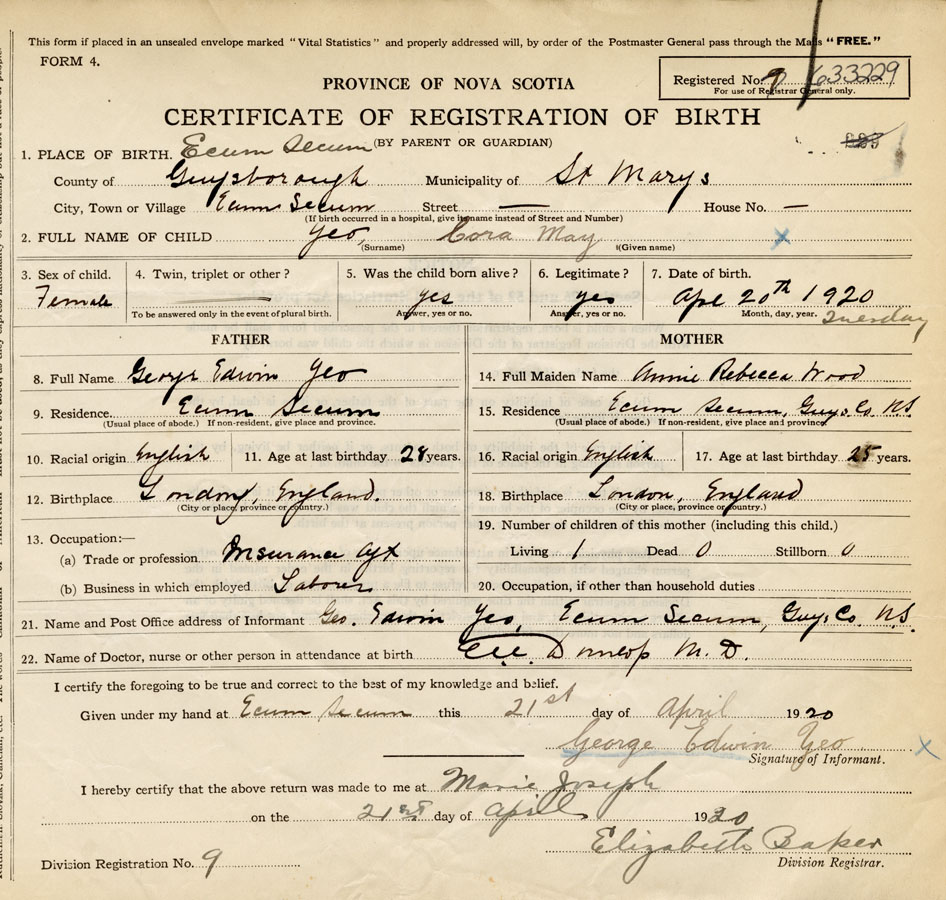 This form if placed in an unsealed envelope marked "Vital Statistics" and properly addressed will, by order of the Postmaster General pass through the Mails "FREE."
FORM 4.
Registered No. 9 633229
For use of Registrar General only.
PROVINCE OF NOVA SCOTIA
CERTIFICATE OF REGISTRATION OF BIRTH
(BY PARENT OR GUARDIAN)
1. PLACE OF BIRTH. Ecum Secum
County of Guysborough Municipality of St Marys
City, Town or Village Ecum Secum Street — House No. —
(If birth occurred in a hospital, give its name instead of Street and Number)
2. FULL NAME OF CHILD Yeo, Cora May
(Surname) (Given name)
3. Sex of child. 4. Twin, triplet or other? 5. Was the child born alive? 6. Legitimate? 7. Date of birth.
Female — yes yes Apl 20th 1920
To be answered only in the event of plural birth. Answer, yes or no. Answer, yes or no. Month, day, year.
Tuesday
FATHER
8. Full Name George Edwin Yeo
9. Residence. Ecum Secum
(Usual place of abode.) If non-resident, give place and province.
10. Racial origin English 11. Age at last birthday 28 years.
12. Birthplace London, England.
(City or place, province or country.)
13. Occupation:—
(a) Trade or profession Insurance agt
(b) Business in which employed Laborer
MOTHER
14. Full Maiden Name Annie Rebecca Wood
15. Residence Ecum Secum, Guys. Co. N.S.
(Usual place of abode.) If non-resident, give place and province
16. Racial origin English 17. Age at last birthday 25 years.
18. Birthplace London, England
(City or place, province or country.)
19. Number of children of this mother (including this child.)
Living 1 Dead 0 Stillborn 0
20. Occupation, if other than household duties
21. Name and Post Office address of Informant Geo. Edwin Yeo, Ecum Secum, Guys. Co. N.S.
22. Name of Doctor, nurse or other person in attendance at birth Dunlop M.D.
I certify the foregoing to be true and correct to the best of my knowledge and belief.
Given under my hand at Ecum Secum this 21st day of April 1920
George Edwin Yeo
Signature of Informant.
I hereby certify that the above return was made to me at Marie Joseph
on the 21st day of April 1920
Elizabeth Baker
Division Registrar.
Division Registration No. 9